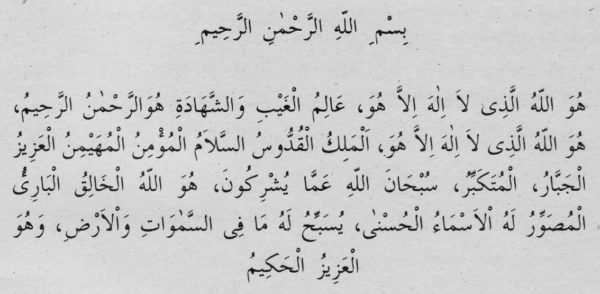 بِسْمِ اللّٰهِ الرَّحْمٰنِ الرَّحِيمِ
هُوَ اللّٰهُ الَّذِى لاَ اِلٰهَ اِلاَّ هُوَ، عَالِمُ الْغَيْبِ وَالشَّهَادَةِ هُوَالرَّحْمٰنُ الرَّحِيمُ،
هُوَ اللّٰهُ الَّذِى لاَ اِلٰهَ اِلاَّ هُوَ، اَلْمَلِكُ الْقُدُّوسُ السَّلاَمُ الْمُؤْمِنُ الْمُهَيْمِنُ الْعَزِيزُ
الْجَبَّارُ، الْمُتَكَبِّرُ، سُبْحَانَ اللّٰهِ عَمَّا يُشْرِكُونَ، هُوَ اللّٰهُ الْخَالِقُ الْبَارِئُ
الْمُصَوِّرُ لَهُ الْاَسْمَاءُ الْحُسْنٰى، يُسَبِّحُ لَهُ مَا فِى السَّمٰوَاتِ وَالْاَرْضِ، وَهُوَ
الْعَزِيزُ الْحَكِيمُ